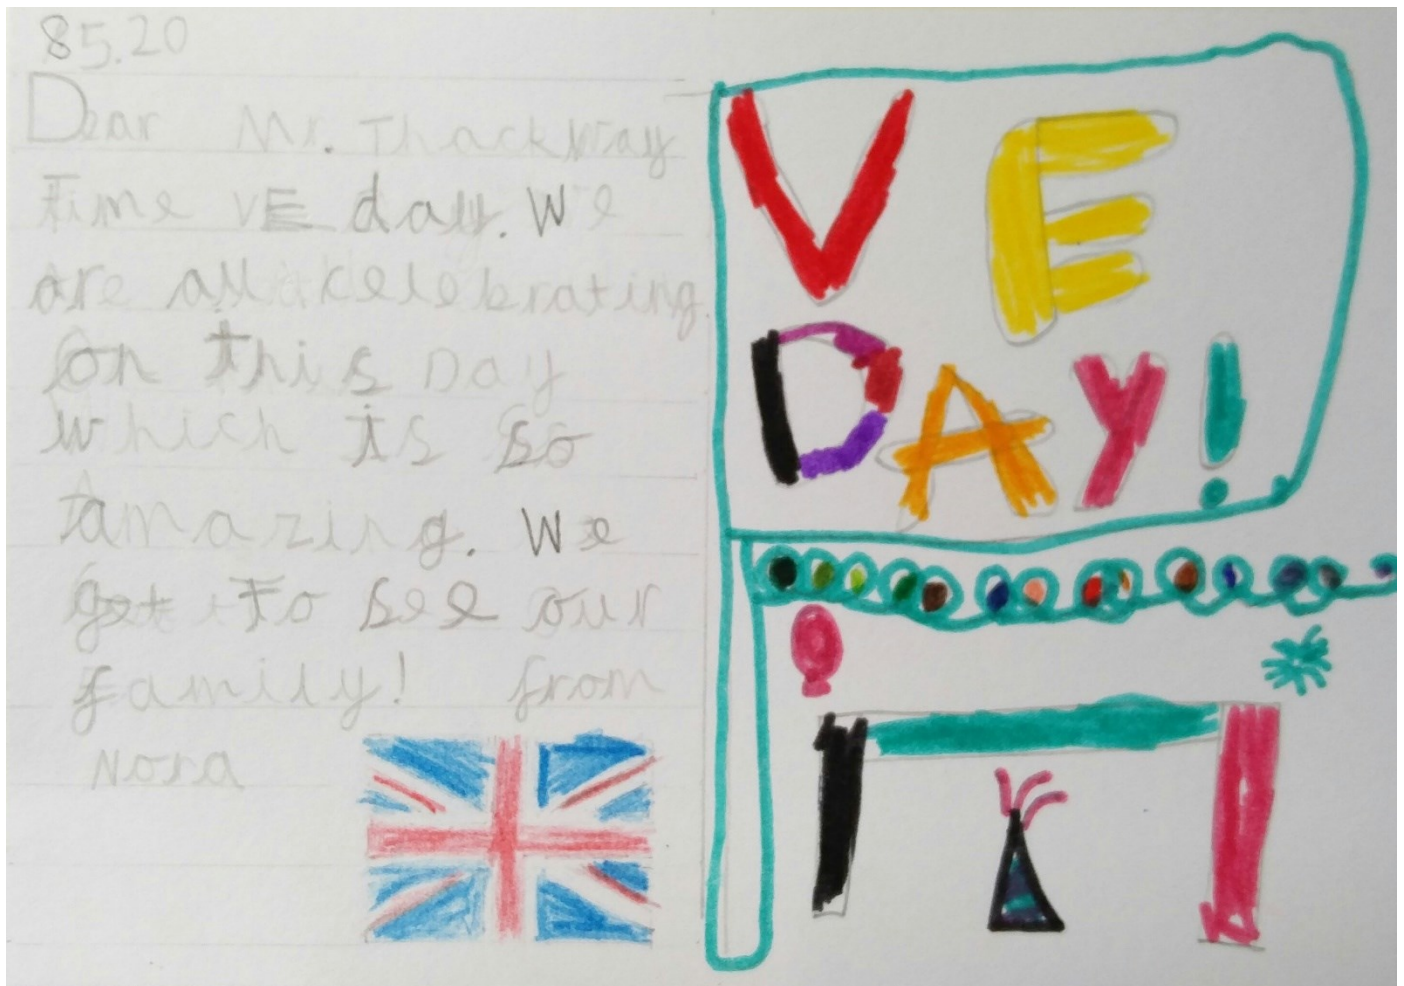 85.20
Dear Mr. Thackway
Time VE day. We
are all celebrating
on this Day
which is so
amazing. We
get to see our
family! from
Nora
VE
DAY!